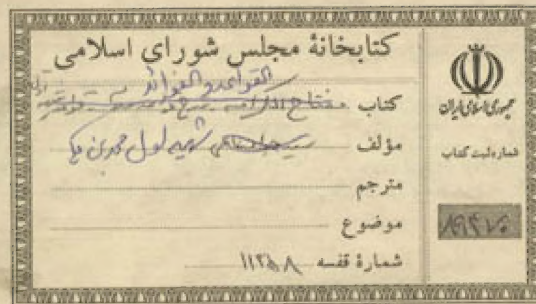 کتابخانهٔ مجلس شورای اسلامی
القواعد و الفوائد
کتاب مفتاح
مؤلف شهید اول محمد بن مکی
مترجم
موضوع
شمارهٔ قفسه ۱۱۲۵۸
جمهوری اسلامی ایران
شماره ثبت کتاب